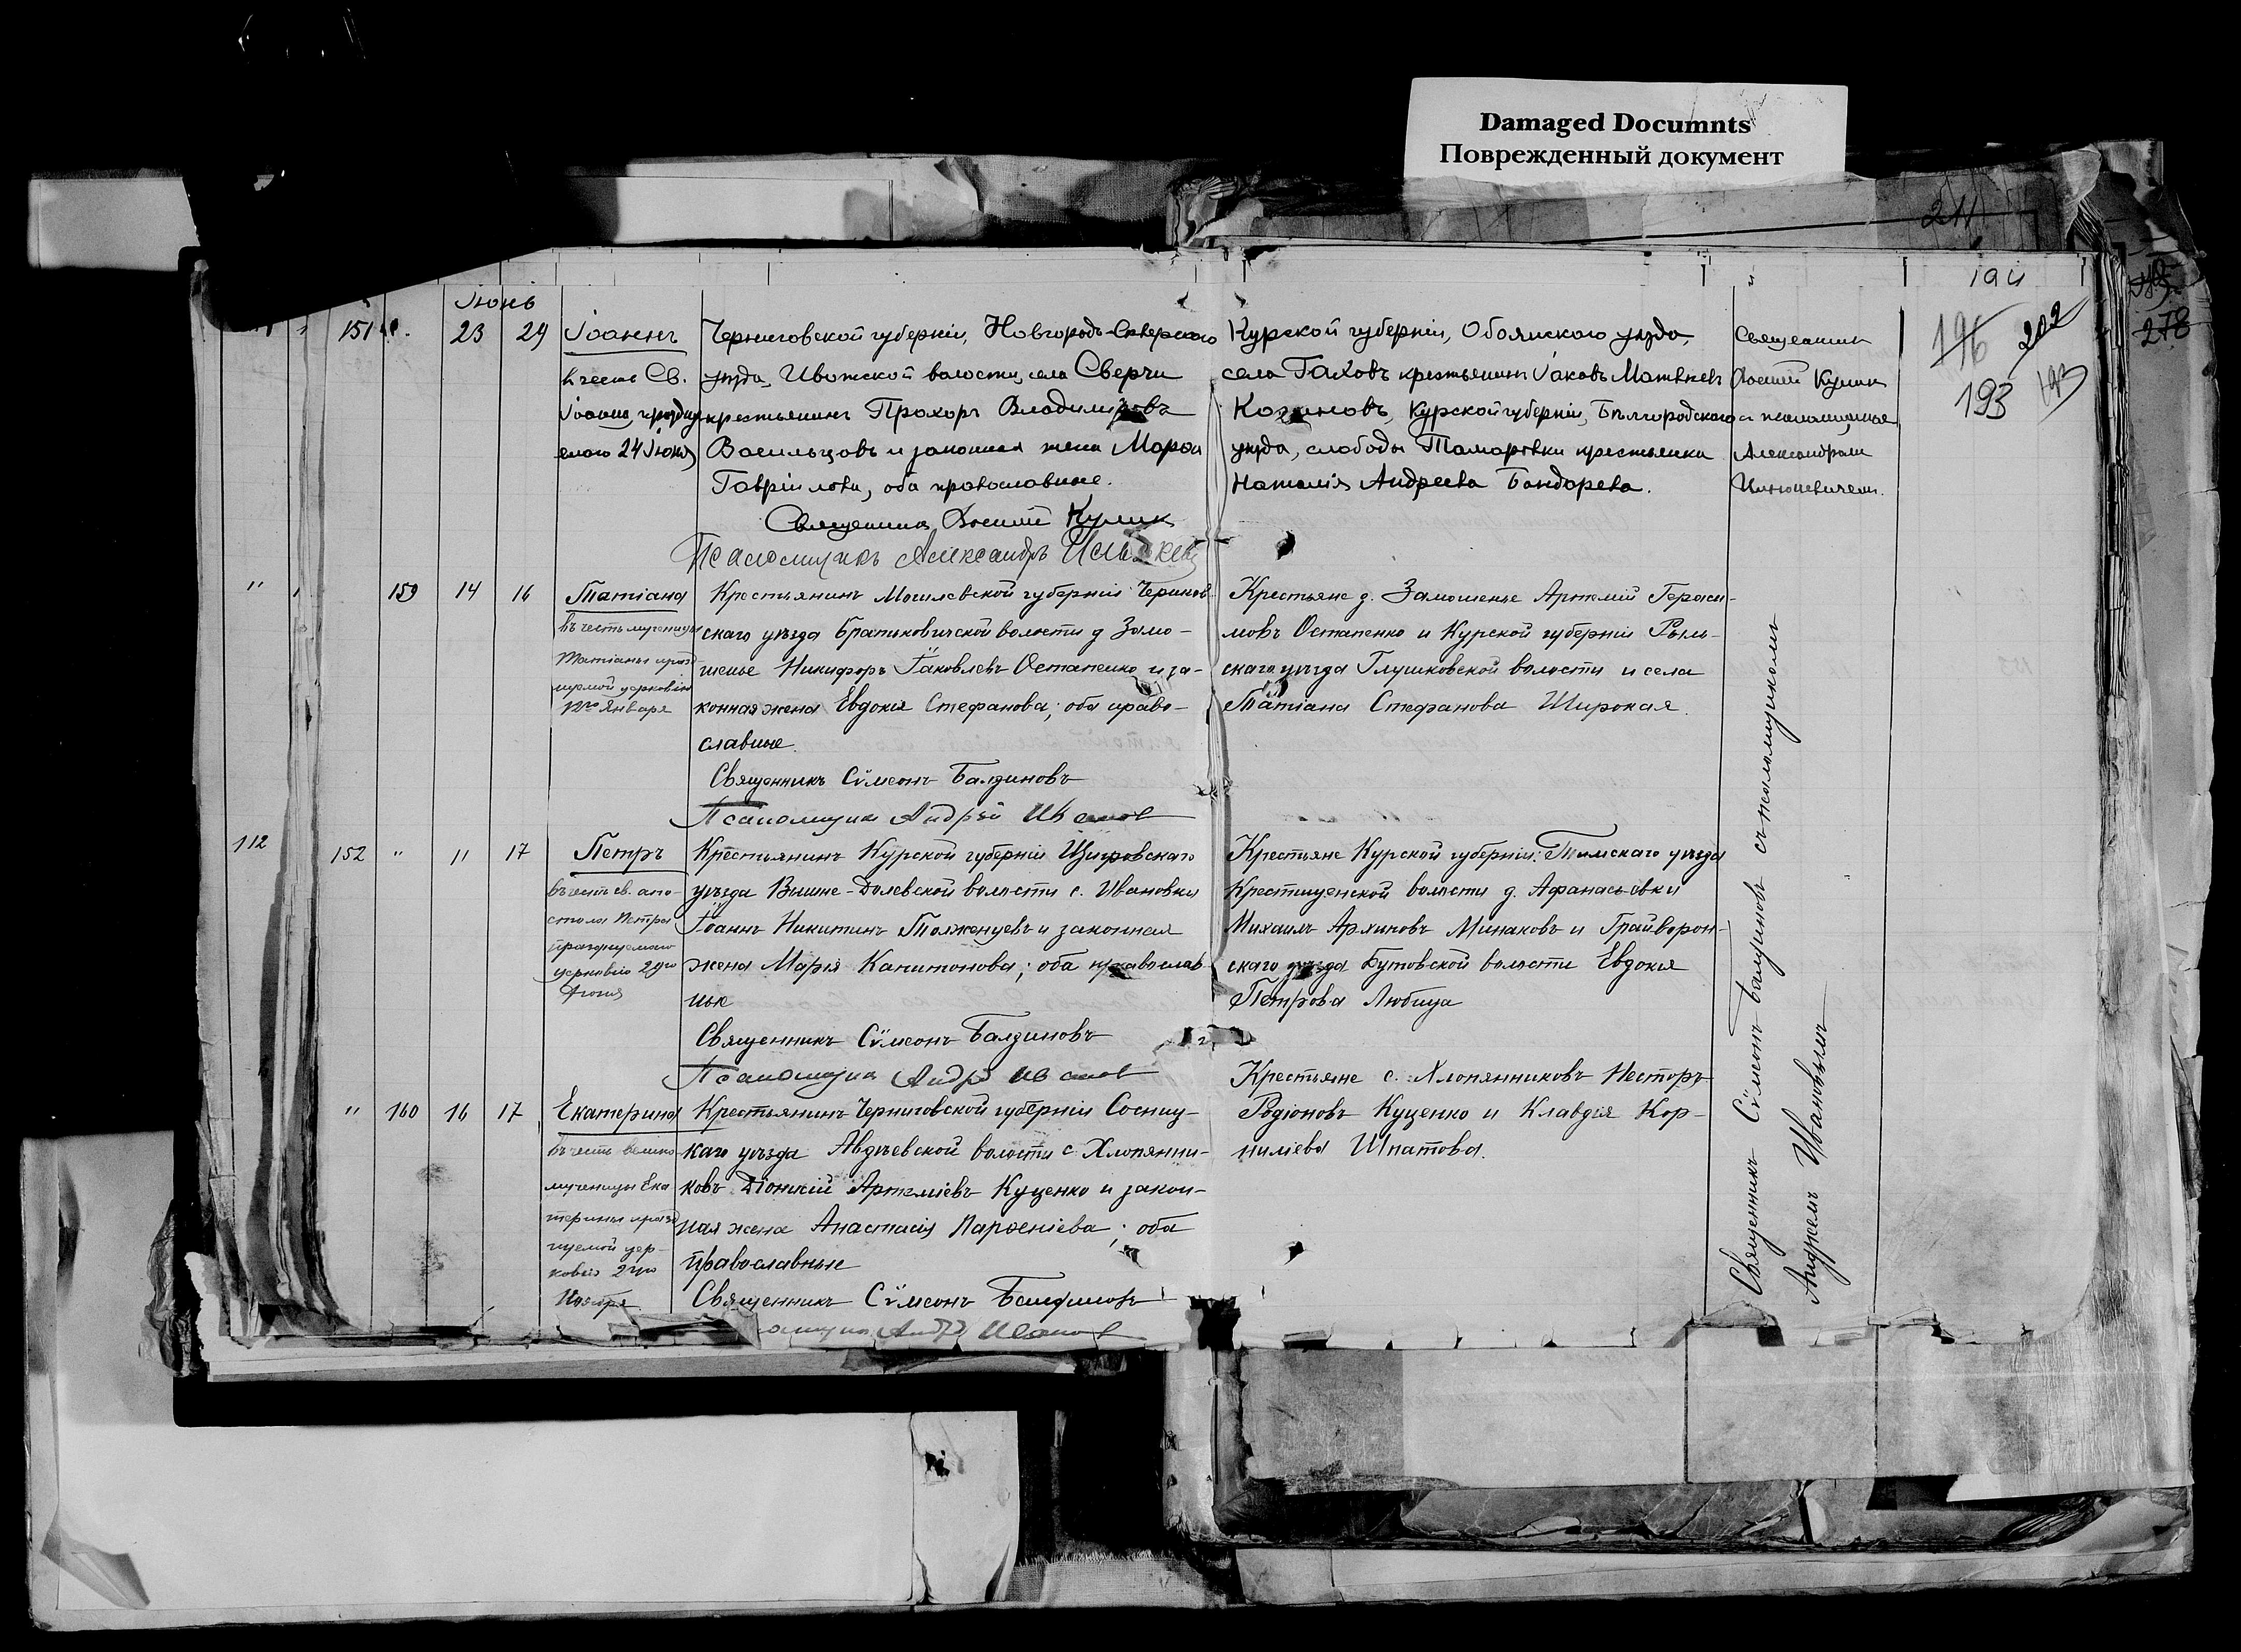 Damaged Documnts
Поврежденный документ
211
194
196
202
193
193
278
Іюнь
151
23
29
Іоаннъ
в честь Св.
Іоанна, праздну
емого 24 Іюня
Черниговской губерніи, Новгородъ-Сѣверского
уѣзда, Ивотской волости, села Сверчи
крестьянинъ Прохоръ Владиміровъ
Васильцовъ и законная жена Марѳа
Гавріилова, оба православные.
Священник Кулик
Псаломщикъ Александръ
Курской губерніи, Обоянского уѣзда,
села Гахов крестьянинъ Іаковъ Матвѣевъ
Козиновъ, Курской губерніи, Бѣлгородского
уѣзда, слободы Томаровки крестьянка
Наталія Андреева Бондарева.
Священник
Кулик
с псаломщикомъ
Александром
"
159
14
16
Татіана
въ честь мученицы
Татіаны празд-
нуемой церковію
12го Января
Крестьянинъ Могилевской губерніи Чериков-
скаго уѣзда Братьковичской волости д Замо-
шенье Никифоръ Іаковлевъ Остапенко и за-
конная жена Евдокія Стефанова; оба право-
славные.
Священникъ Сѵмеонъ Балдиновъ
Псаломщик Андрей Иванов
Крестьяне д. Замошенье Артемій Гераси-
мовъ Остапенко и Курской губерніи Рыль-
скаго уѣзда Глушковской волости и села
Татіана Стефанова Широкая.
112
152
"
11
17
Петръ
въ честь св. апо-
стола Петра
празднуемаго
церковію 29го
Іюня
Крестьянинъ Курской губерніи Щигровскаго
уѣзда Вышне-Долевской волости с. Ивановки
Іоаннъ Никитинъ и законная
жена Марія Капитонова; оба православ-
ные
Священникъ Сѵмеонъ Балдиновъ
Псаломщик Андрей Иванов
Крестьяне Курской губерніи: Тимскаго уѣзда
Крестищенской волости д. Афанасьевки
Михаилъ Архиповъ Минаковъ и Грайворон-
скаго уѣзда Бутовской волости Евдокія
Петрова Любица
"
160
16
17
Екатерина
въ честь велико-
мученицы Ека
терины празд
нуемой цер-
ковію 24го
Ноября
Крестьянинъ Черниговской губерніи Сосниц-
каго уѣзда Авдѣевской волости с. Хлопянни-
ковъ Діонисій Артеміевъ Куценко и закон-
ная жена Анастасія Парѳеніева; оба
православные
Священникъ Сѵмеонъ Балдиновъ
Андрей Иванов
Крестьяне с. Хлопянниковъ Несторъ
Родіоновъ Куценко и Клавдія Кор-
ниліева Ипатова.
Священникъ Сѵмеонъ Балдиновъ съ псаломщикомъ
Андреемъ Ивановымъ